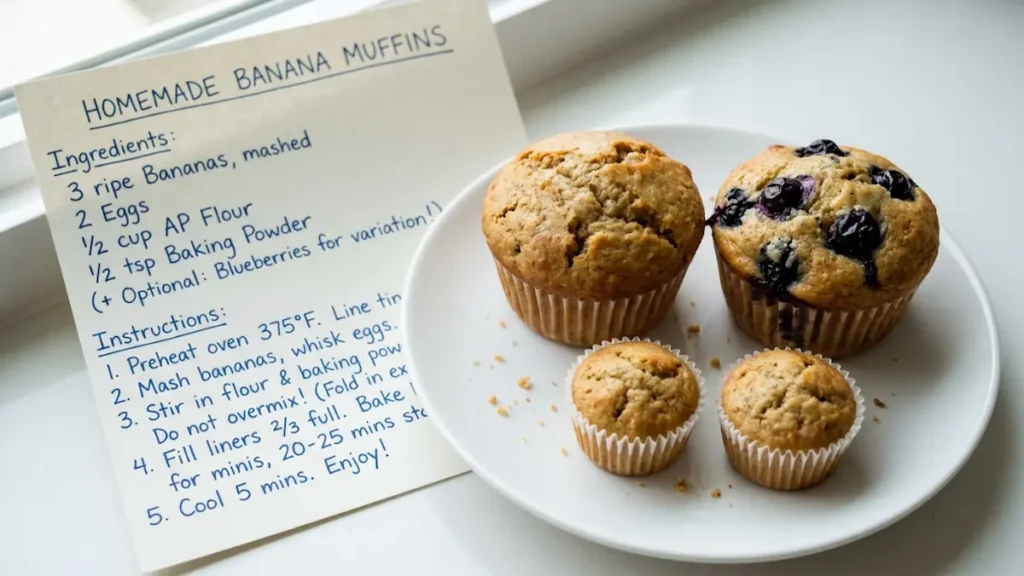 HOMEMADE BANANA MUFFINS
Ingredients:
3 ripe Bananas, mashed
2 Eggs
½ cup AP Flour
½ tsp Baking Powder
(+ Optional: Blueberries for variation!)
Instructions:
1. Preheat oven 375°F. Line
2. Mash bananas, whisk eggs.
3. Stir in flour & baking
Do not overmix! (Fold in
4. Fill liners ⅔ full. Bake
for minis, 20-25 mins
5. Cool 5 mins. Enjoy!